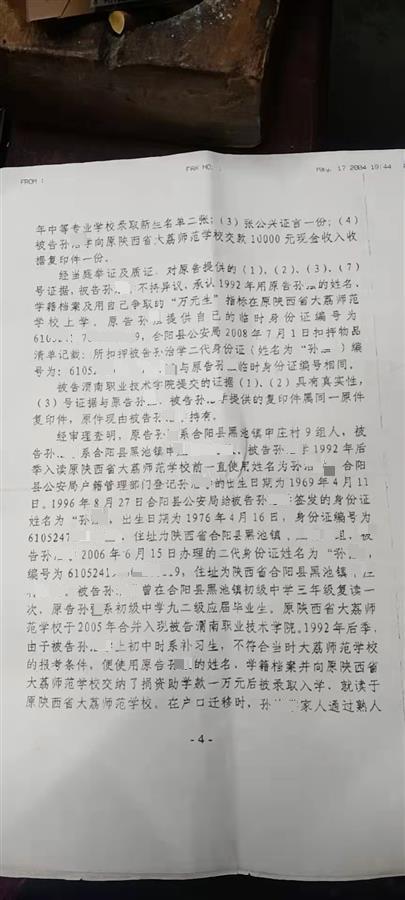 FROM :
FAX NO. :
May. 17 2004 19:44
年中等专业学校录取新生名单二张；（3）张公兴证言一份；（4）
被告孙 学向原陕西省大荔师范学校交款10000元现金收入收
据复印件一份。
经当庭举证及质证，对原告提供的（1）、（2）、（3）、（7）
号证据，被告孙 不持异议，承认1992年用原告孙 的姓名、
学籍档案及用自己争取的“万元生”指标在原陕西省大荔师范
学校上学。原告孙 提供自己的临时身份证编号为
610 9，合阳县公安局2008年7月1日扣押物品
清单记载：所扣押被告孙治学二代身份证（姓名为“孙 ”）编
号为：6105 与原告孙 临时身份证编号相同。
被告渭南职业技术学院提交的证据（1）、（2）具有真实性，
（3）号证据与原告孙 、被告孙 提供的复印件属同一原件
复印件，原件现由被告 持有。
经审理查明，原告孙 系合阳县黑池镇中庄村9组人，被
告孙 系合阳县黑池镇 学1992年后
季入读原陕西省大荔师范学校前一直使用姓名为孙治 合阳
县公安局户籍管理部门登记孙 的出生日期为1969年4月11
日。1996年8月27日合阳县公安局给被告孙 签发的身份证
姓名为“孙 ，出生日期为1976年4月16日，身份证编号为
6105247 ，住址为陕西省合阳县黑池镇 组，被
告孙 2006年6月15日办理的二代身份证姓名为“孙 ，
编号为6105241 9，住址为陕西省合阳县黑池镇
。被告孙 曾在合阳县黑池镇初级中学三年级复读一
次，原告孙 系初级中学九二级应届毕业生。原陕西省大荔师
范学校于2005年合并入现被告渭南职业技术学院。1992年后季，
由于被告孙 上初中时系补习生，不符合当时大荔师范学校
的报考条件，便使用原告孙 的姓名、学籍档案并向原陕西省
大荔师范学校交纳了捐资助学款一万元后被录取入学，就读于
原陕西省大荔师范学校。在户口迁移时，孙 家人通过熟人
- 4 -